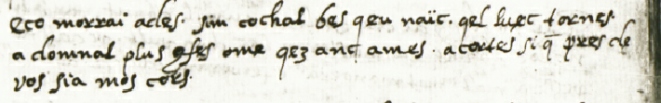 eço morrai ades. sim cochal bes qeu naic. qel luec tornes
a domnal plus gses ome qez anc ames. a cortes si. q̄ pres de
vos sia mos cors.